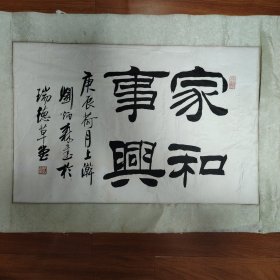 家和
事興
庚辰荷月上澣
劉炳森書於
瑞德草堂